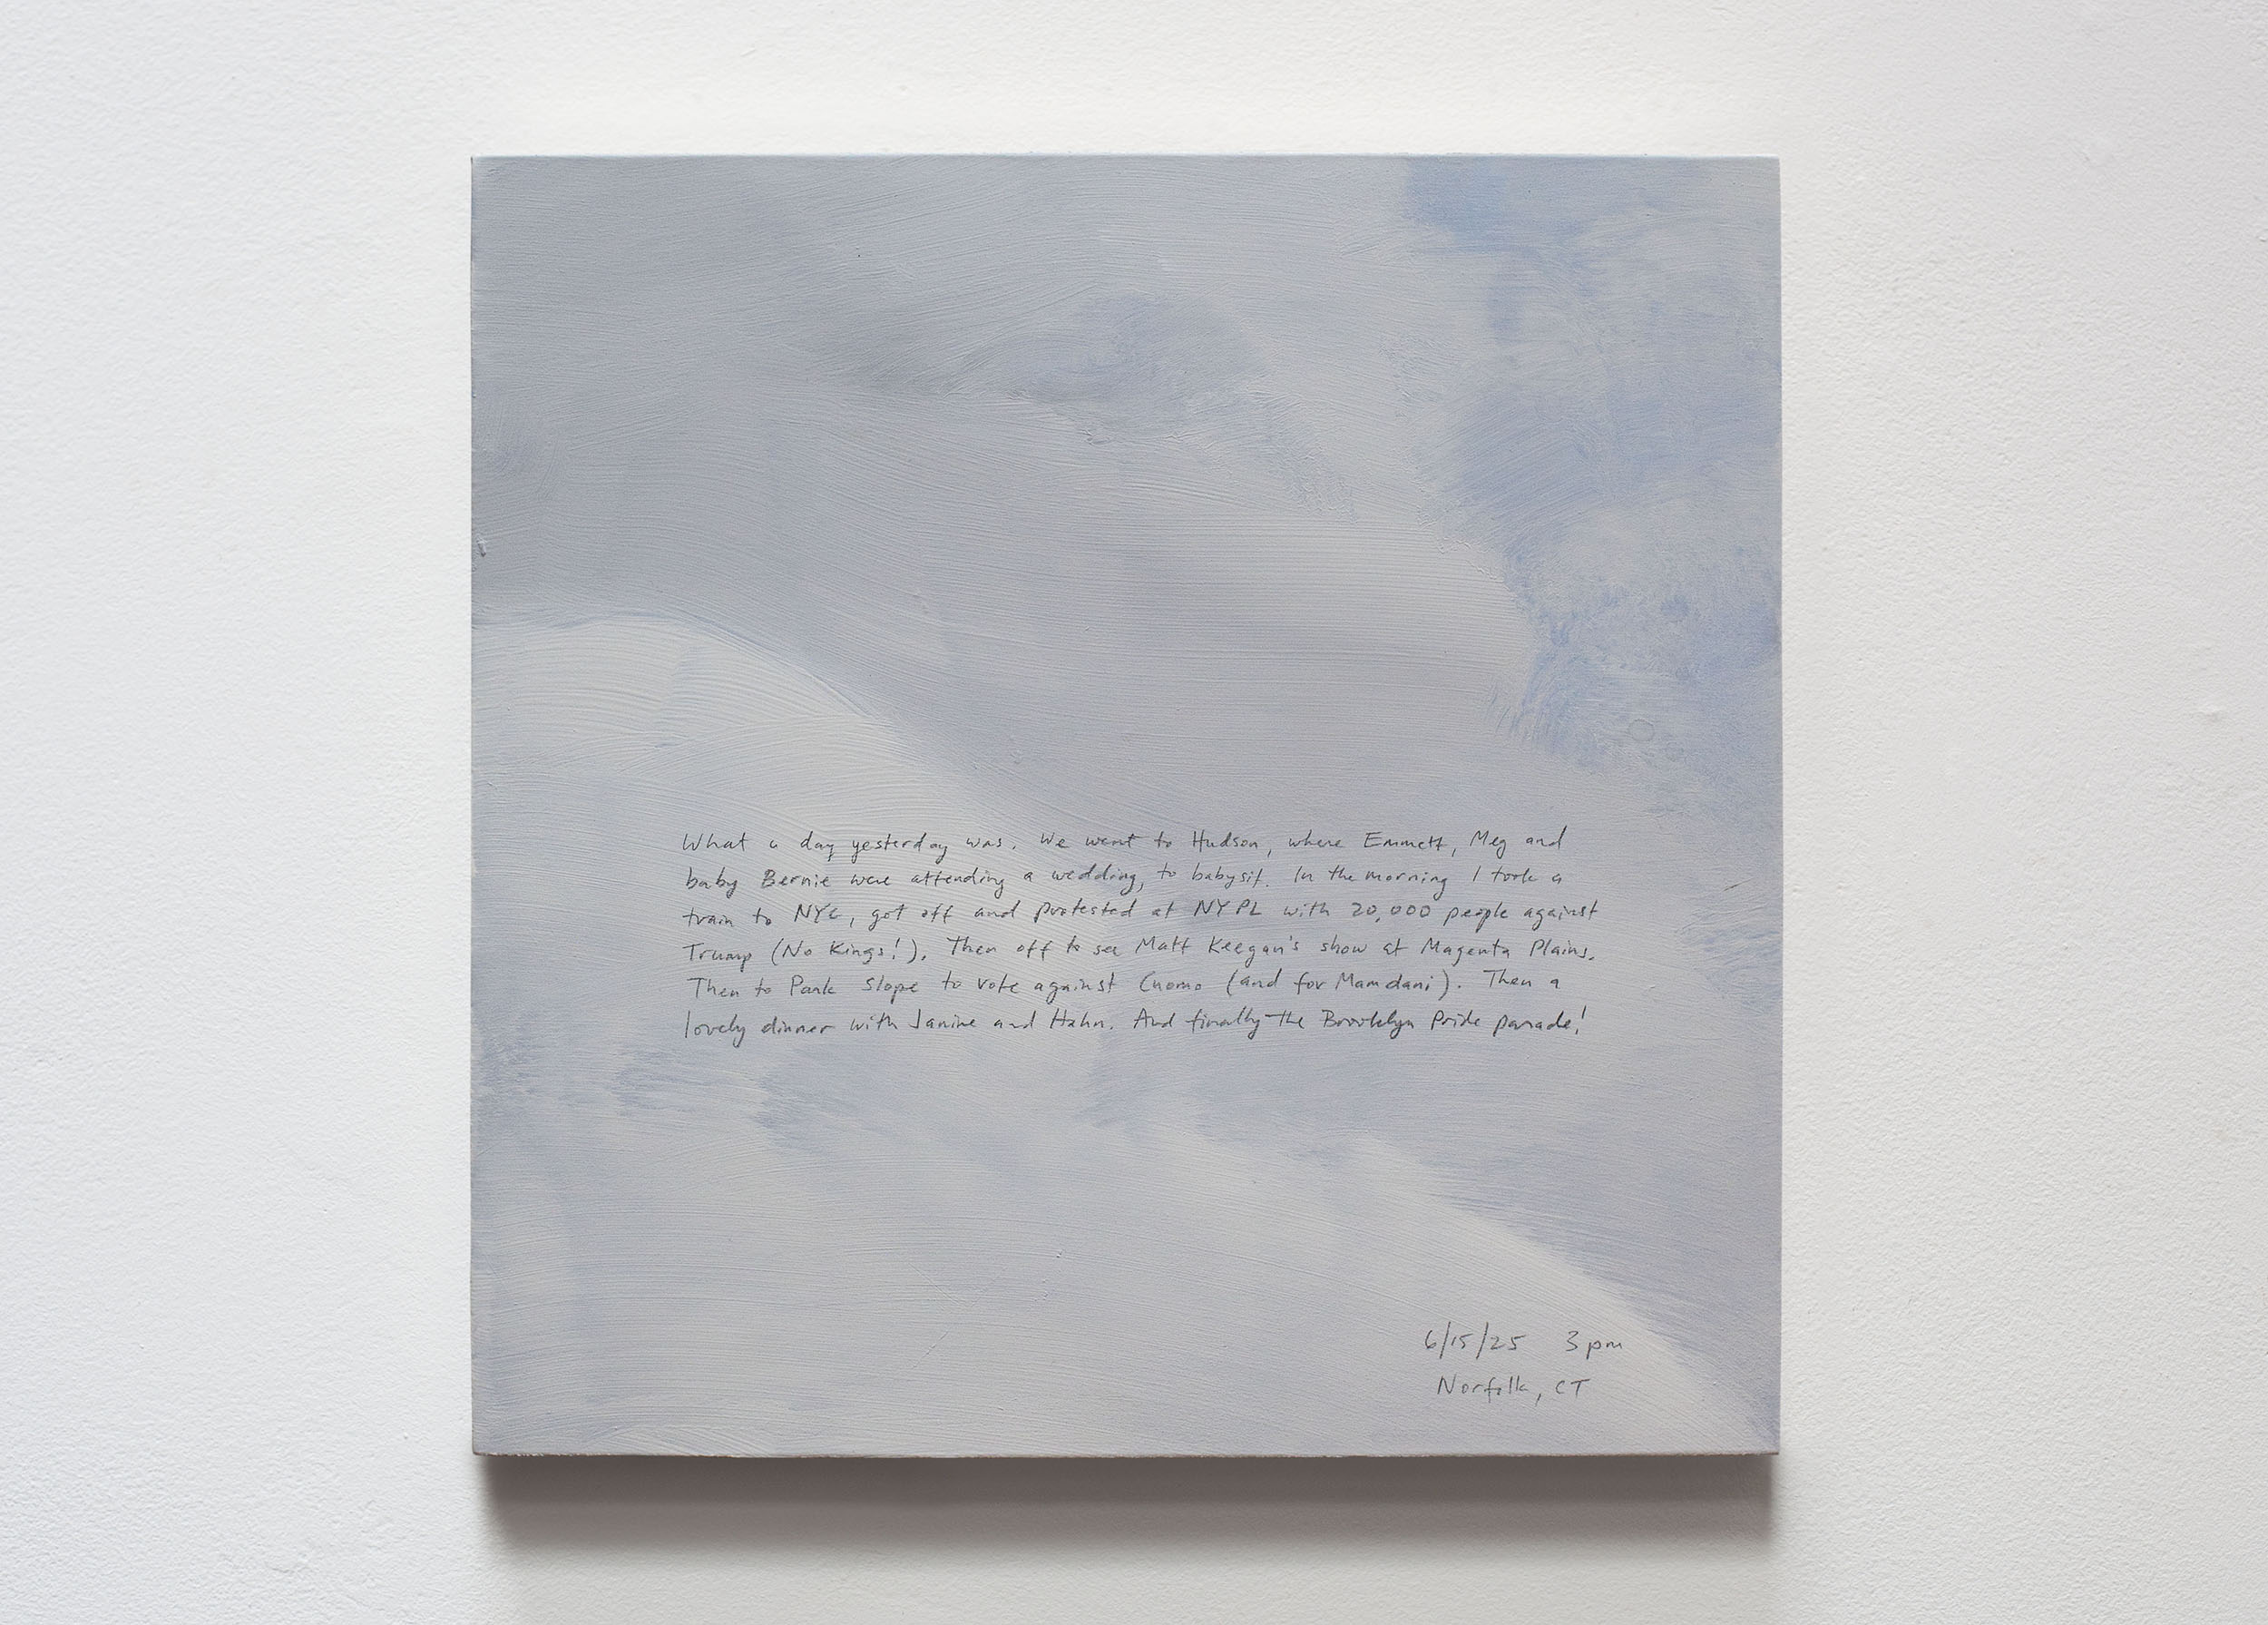 What a day yesterday was. We went to Hudson, where Emmett, Meg and
baby Bernie were attending a wedding, to babysit. In the morning I took a
train to NYC, got off and protested at NYPL with 20,000 people against
Trump (No Kings!). Then off to see Matt Keegan's show at Magenta Plains.
Then to Park Slope to vote against Cuomo (and for Mamdani). Then a
lovely dinner with Janine and Hahn. And finally the Brooklyn Pride parade!
6/15/25 3pm
Norfolk, CT